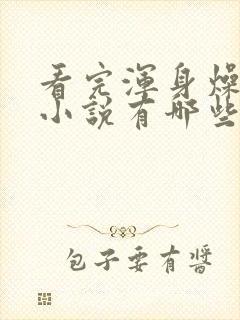 看完渾身燥
小說有哪些
包子要有醬